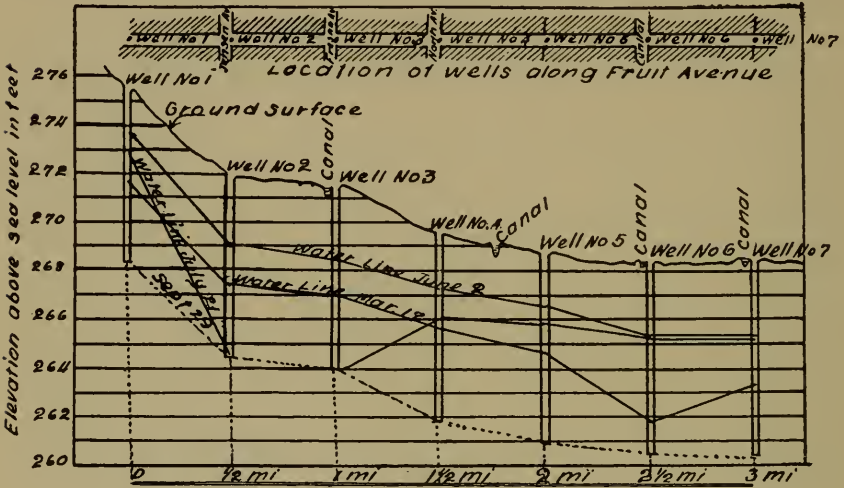 Well No 1 Well No 2 Well No 3 Well No 4 Well No 5 Canal Well No 6 Well No 7
Location of wells along Fruit Avenue
Elevation above sea level in feet
276
274
272
270
268
266
264
262
260
Well No 1
Ground surface
Well No 2
Canal
Well No 3
Well No. 4
Canal
Well No 5
Canal
Well No 6
Canal
Well No 7
Water Line July 21
Sept 29
Water Line June 8
Water Line Mar. 18
0 1/2 mi 1 mi 1 1/2 mi 2 mi 2 1/2 mi 3 mi